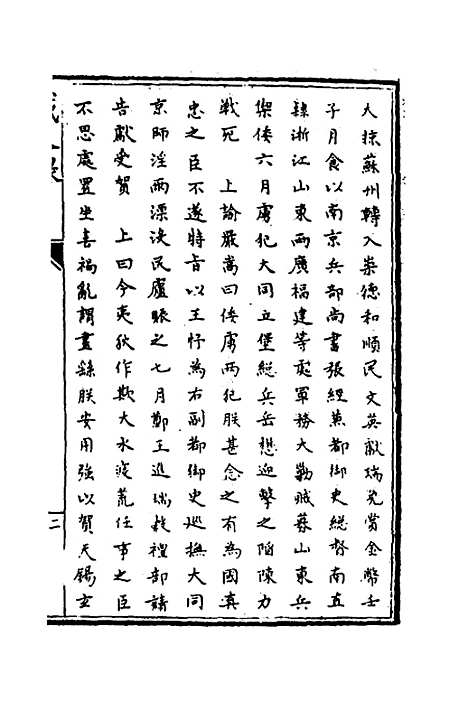 大掠蘇州轉入崇德和順民文英獻瑞兔賞金幣壬
子月食以南京兵部尚書張經兼都御史總督南直
隸浙江山東兩廣福建等處軍務大勦賊募山東兵
禦倭六月虜犯大同立堡総兵岳懋迎擊之陷陳力
戰死　上諭嚴嵩曰倭虜兩犯朕甚念之有為國真
忠之臣不遂特旨以王忬為右副都御史巡撫大同
京師淫雨漂沒民廬賑之七月鄭王進瑞麰禮部請
告獻受賀　上曰今夷狄作欺大水溢荒任事之臣
不思處置坐喜禍亂謂畫錄朕安用強以賀天錫玄
二